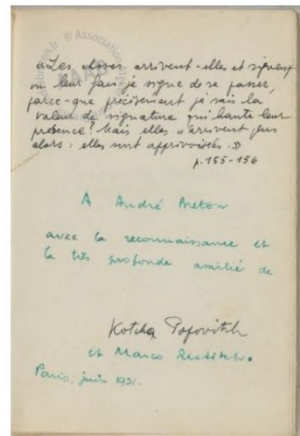 « Les choses arrivent-elles et
ou leur fais-je signe de se passer,
parce-que précisément je sais la
valeur de signature qui hante leur
présence? Mais elles n'arrivent pas
alors : elles sont apprivoisées. »
p. 155-156
A André Breton
avec la reconnaissance et
la très profonde amitié de
Kotcha Popovitch
et Marco Restitch.
Paris, juin 1931.